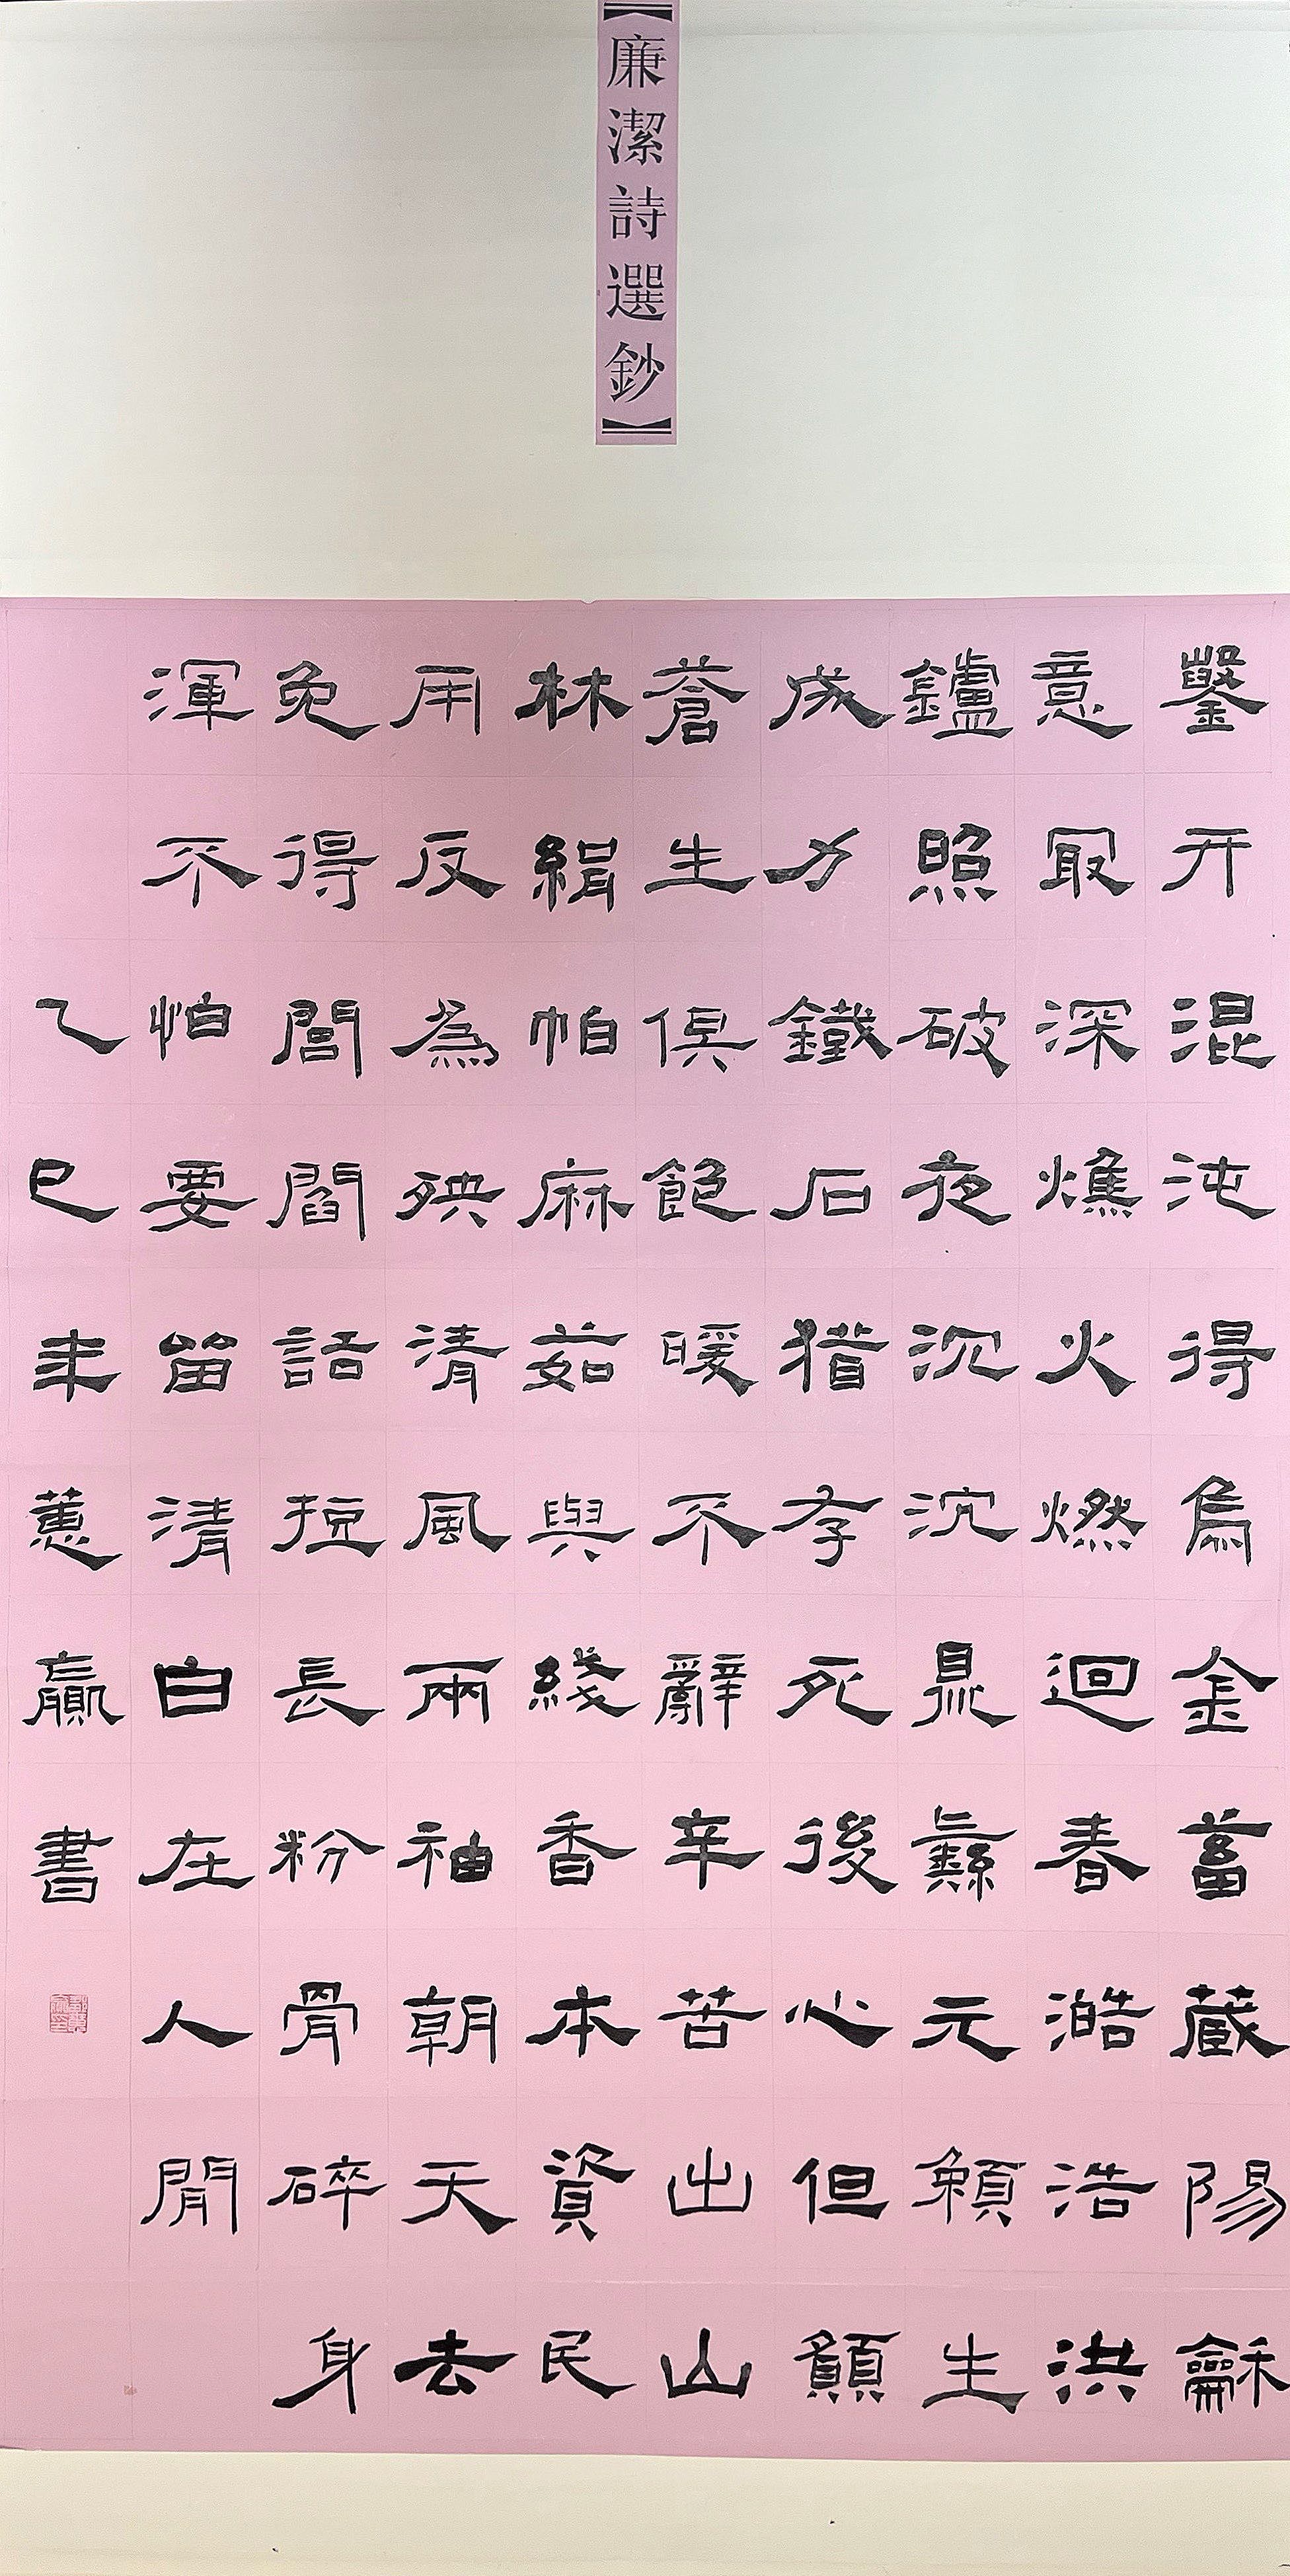 【廉潔詩選鈔】
鑿开混沌得烏金蓄藏陽龢
意冣深燋火燃迴春澔浩洪
鑪照破夜沉沉鼎彝元賴生
成力鐵石猶存死後心但願
蒼生俱飽暖不辭辛苦出山
林絹帕麻茹與綫香本資民
用反為殃清風兩袖朝天去
免得閭閻話短長粉骨碎身
渾不怕要留清白在人間
乙巳年蕙贏書